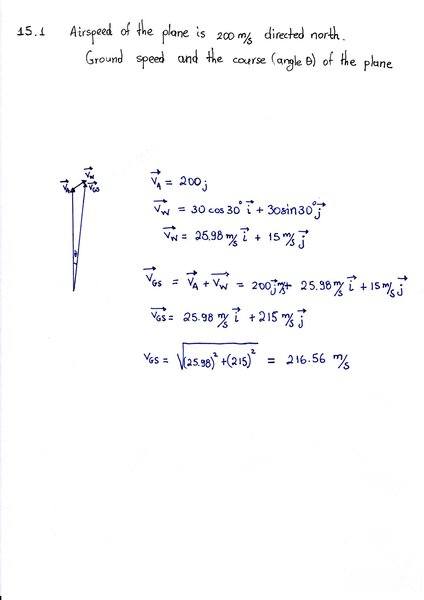 15.1 Airspeed of the plane is 200 m/s directed north.
Ground speed and the course (angle θ) of the plane
V⃗w
V⃗A V⃗GS
θ
V⃗A = 200j
V⃗w = 30 cos 30° i⃗ + 30sin30° j⃗
V⃗w = 25.98 m/s i⃗ + 15 m/s j⃗
V⃗GS = V⃗A + V⃗w = 200j m/s + 25.98 m/s i⃗ + 15 m/s j⃗
V⃗GS = 25.98 m/s i⃗ + 215 m/s j⃗
VGS = √(25.98)² + (215)² = 216.56 m/s